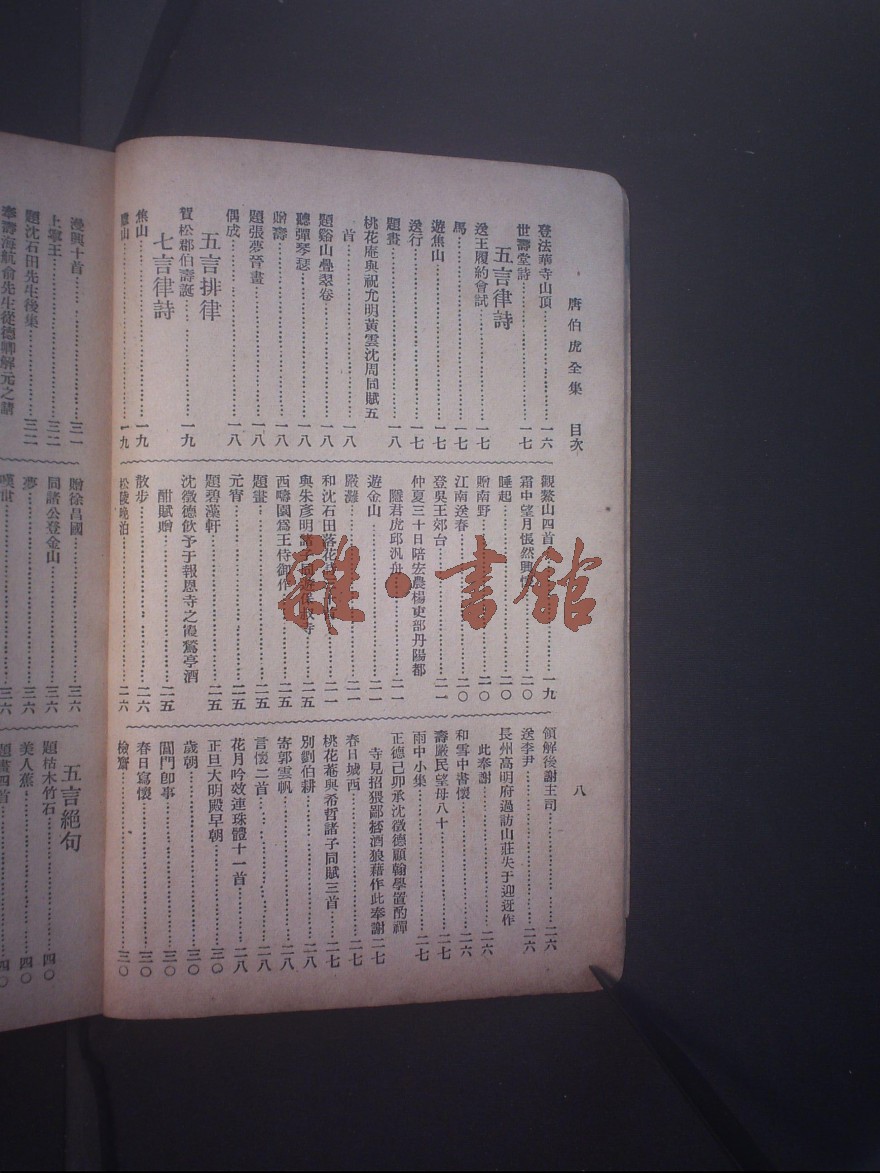 唐伯虎全集　目次
八
登法華寺山頂……一六
世壽堂詩……一七
五言律詩
送王履約會試……一七
馬……一七
遊焦山……一七
送行……一七
題畫……一八
桃花庵與祝允明黃雲沈周同賦五
首……一八
題谿山疊翠卷……一八
聽彈琴瑟……一八
贈壽……一八
題張夢晉畫……一八
偶成……一八
五言排律
賀松郡伯壽誕……一九
七言律詩
焦山……一九
山……一九
觀鰲山四首……一九
霜中望月悵然興懷……二〇
睡起……二〇
贈南野……二〇
江南送春……二〇
登吳王郊台……二一
仲夏三十日陪宏農楊吏部丹陽都
隱君虎邱汎舟……二一
遊金山……二一
嚴灘……二一
和沈石田落花詩
與朱彥明諸子同……寺……二五
西疇圖爲王侍御作……二五
題畫……二五
元宵……二五
題碧藻軒……二五
沈徵德飲予于報恩寺之霞鶩亭酒
酣賦贈……二五
散步……二六
松陵晚泊……二六
領解後謝主司……二六
送李尹……二六
長州高明府過訪山莊失于迎迓作
此奉謝……二六
和雪中書懷……二六
壽嚴民望母八十……二七
雨中小集……二七
正德己卯承沈徵德顧翰學置酌禪
寺見招猥鄙盃酒狼藉作此奉謝二七
春日城西……二七
桃花菴與希哲諸子同賦三首……二七
別劉伯耕……二八
寄郭雲帆……二八
言懷二首……二八
花月吟效連珠體十一首……二八
正旦大明殿早朝……三〇
歲朝……三〇
閶門卽事……三〇
春日寫懷……三〇
檢齋……三〇
漫興十首……三一
上寧王……三二
題沈石田先生後集……三二
奉壽海航俞先生從德卿解元之請
贈徐昌國……三六
同諸公登金山……三六
夢……三六
嘆世……三六
五言絕句
題枯木竹石……四〇
美人蕉……四〇
題畫四首……四〇
雜·書館